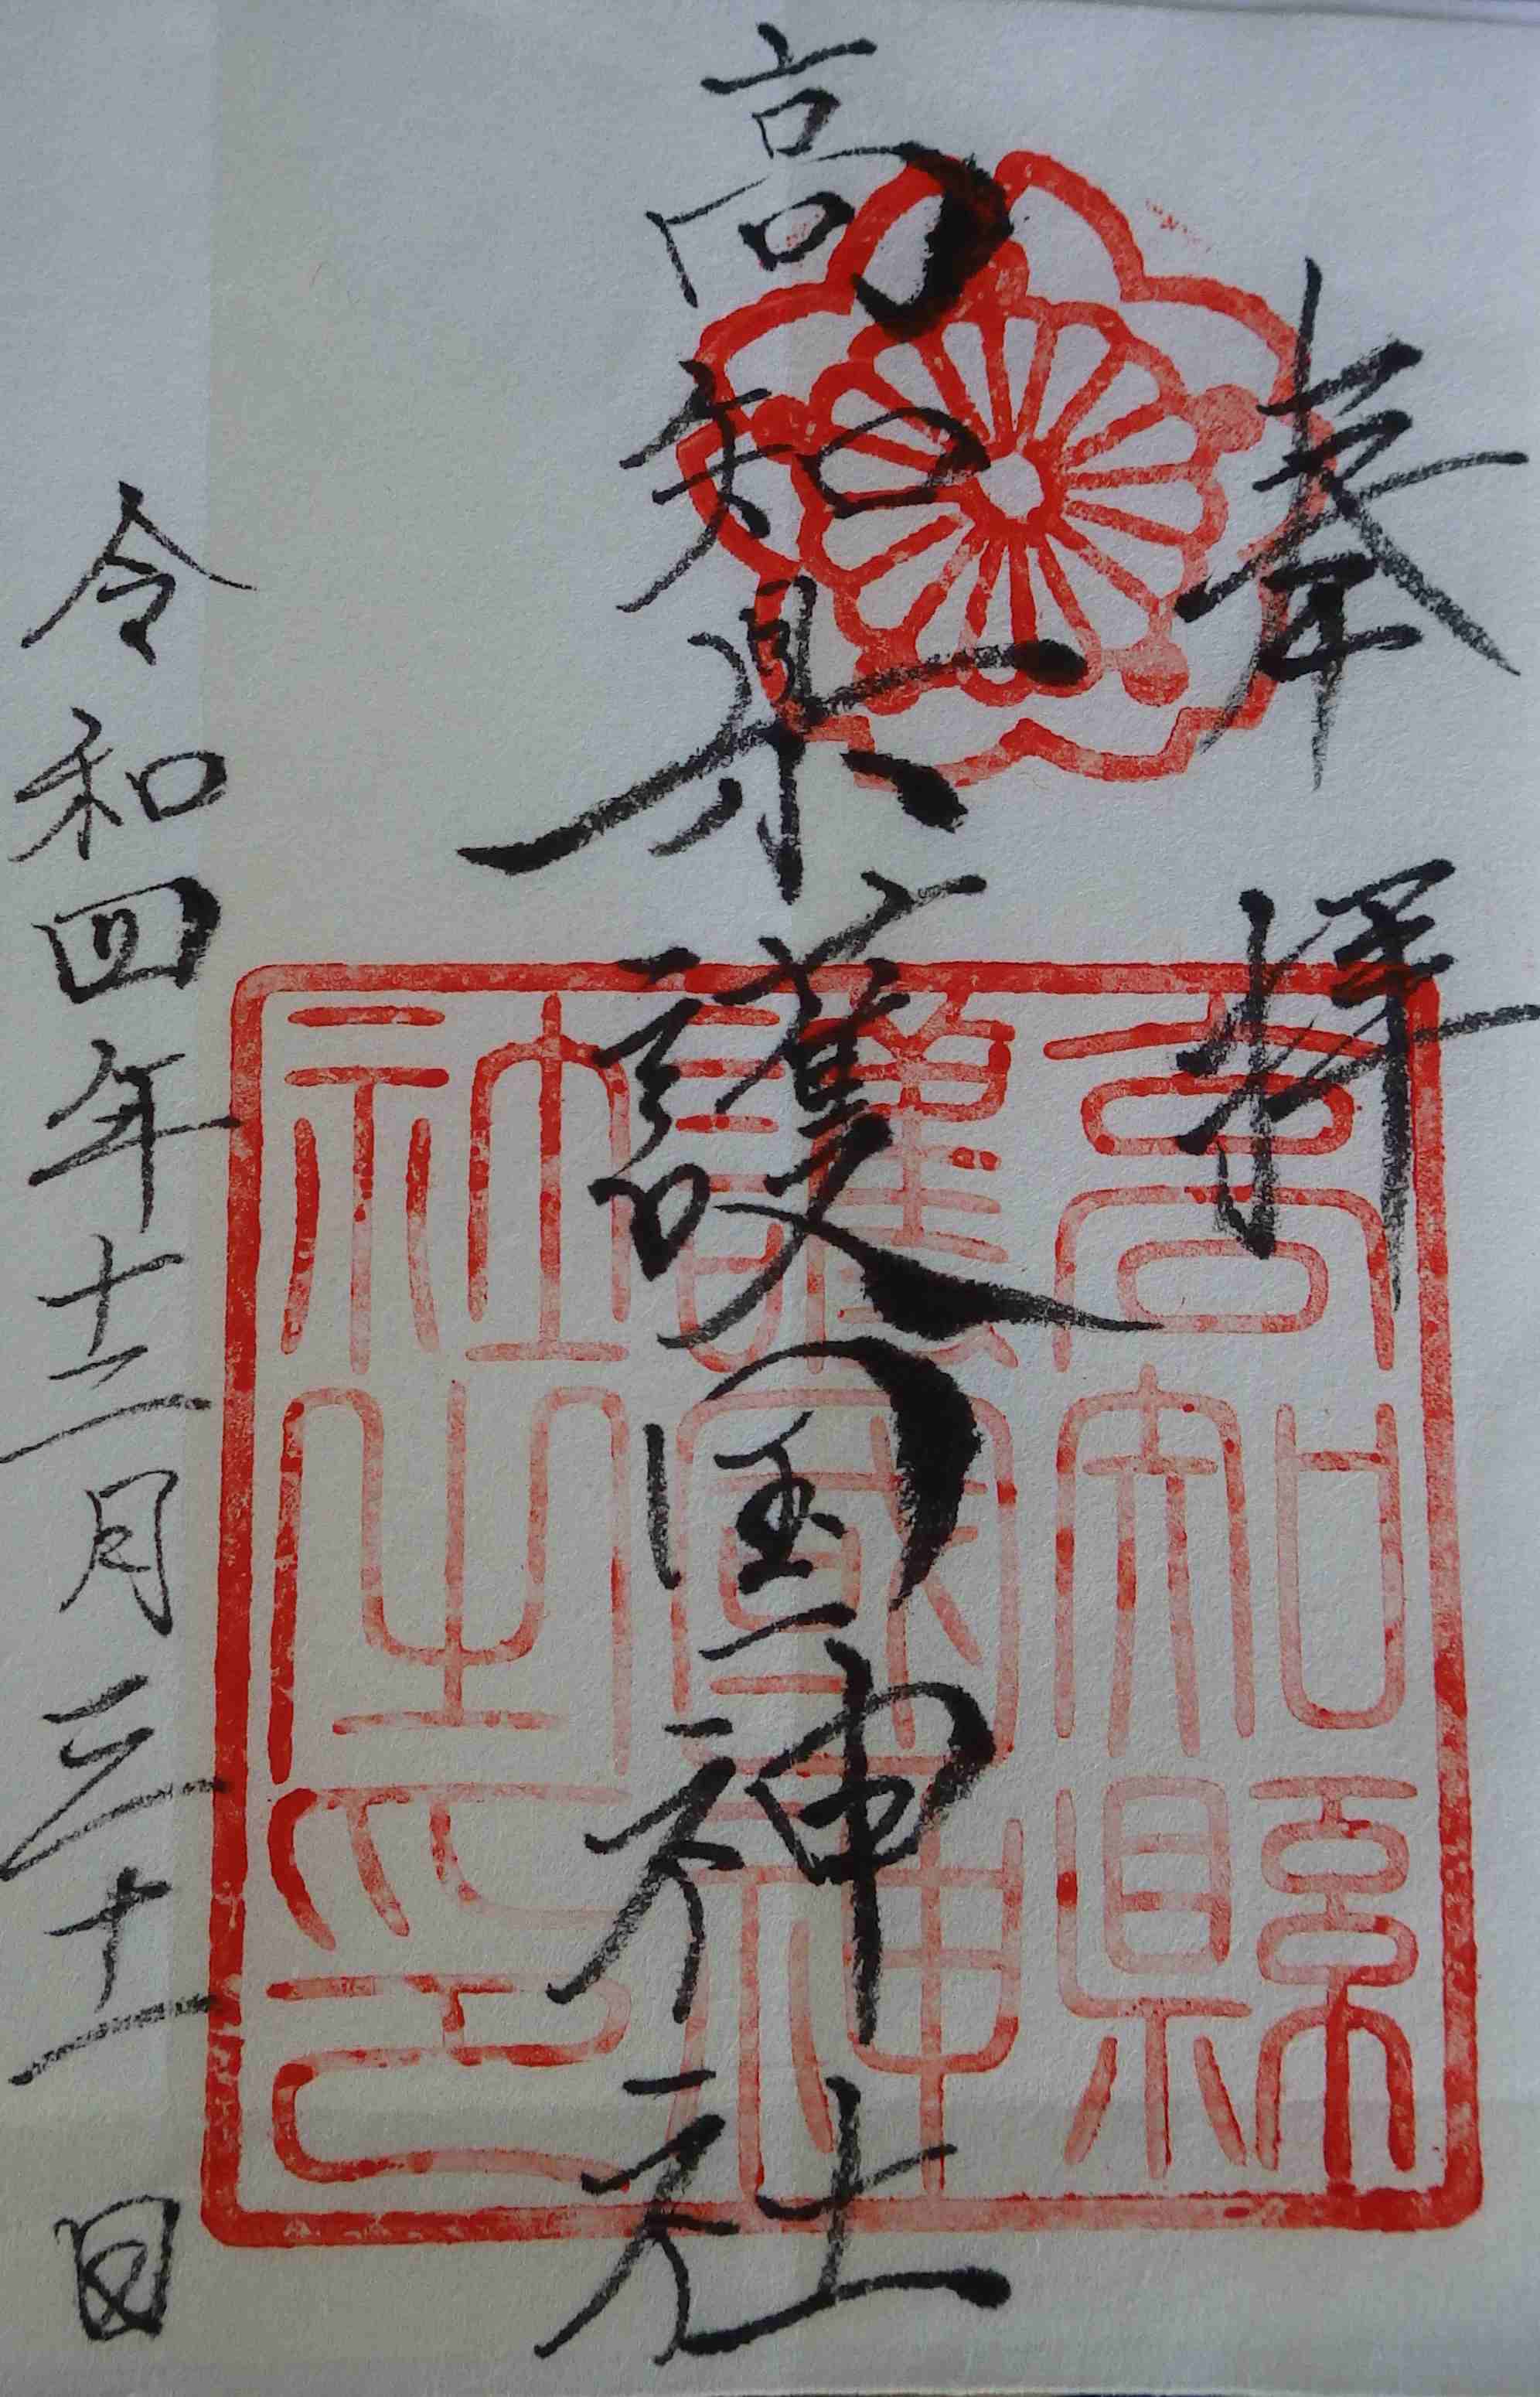 奉拝
高知県護国神社
令和四年十二月三十一日
高知縣
護國神
社之印